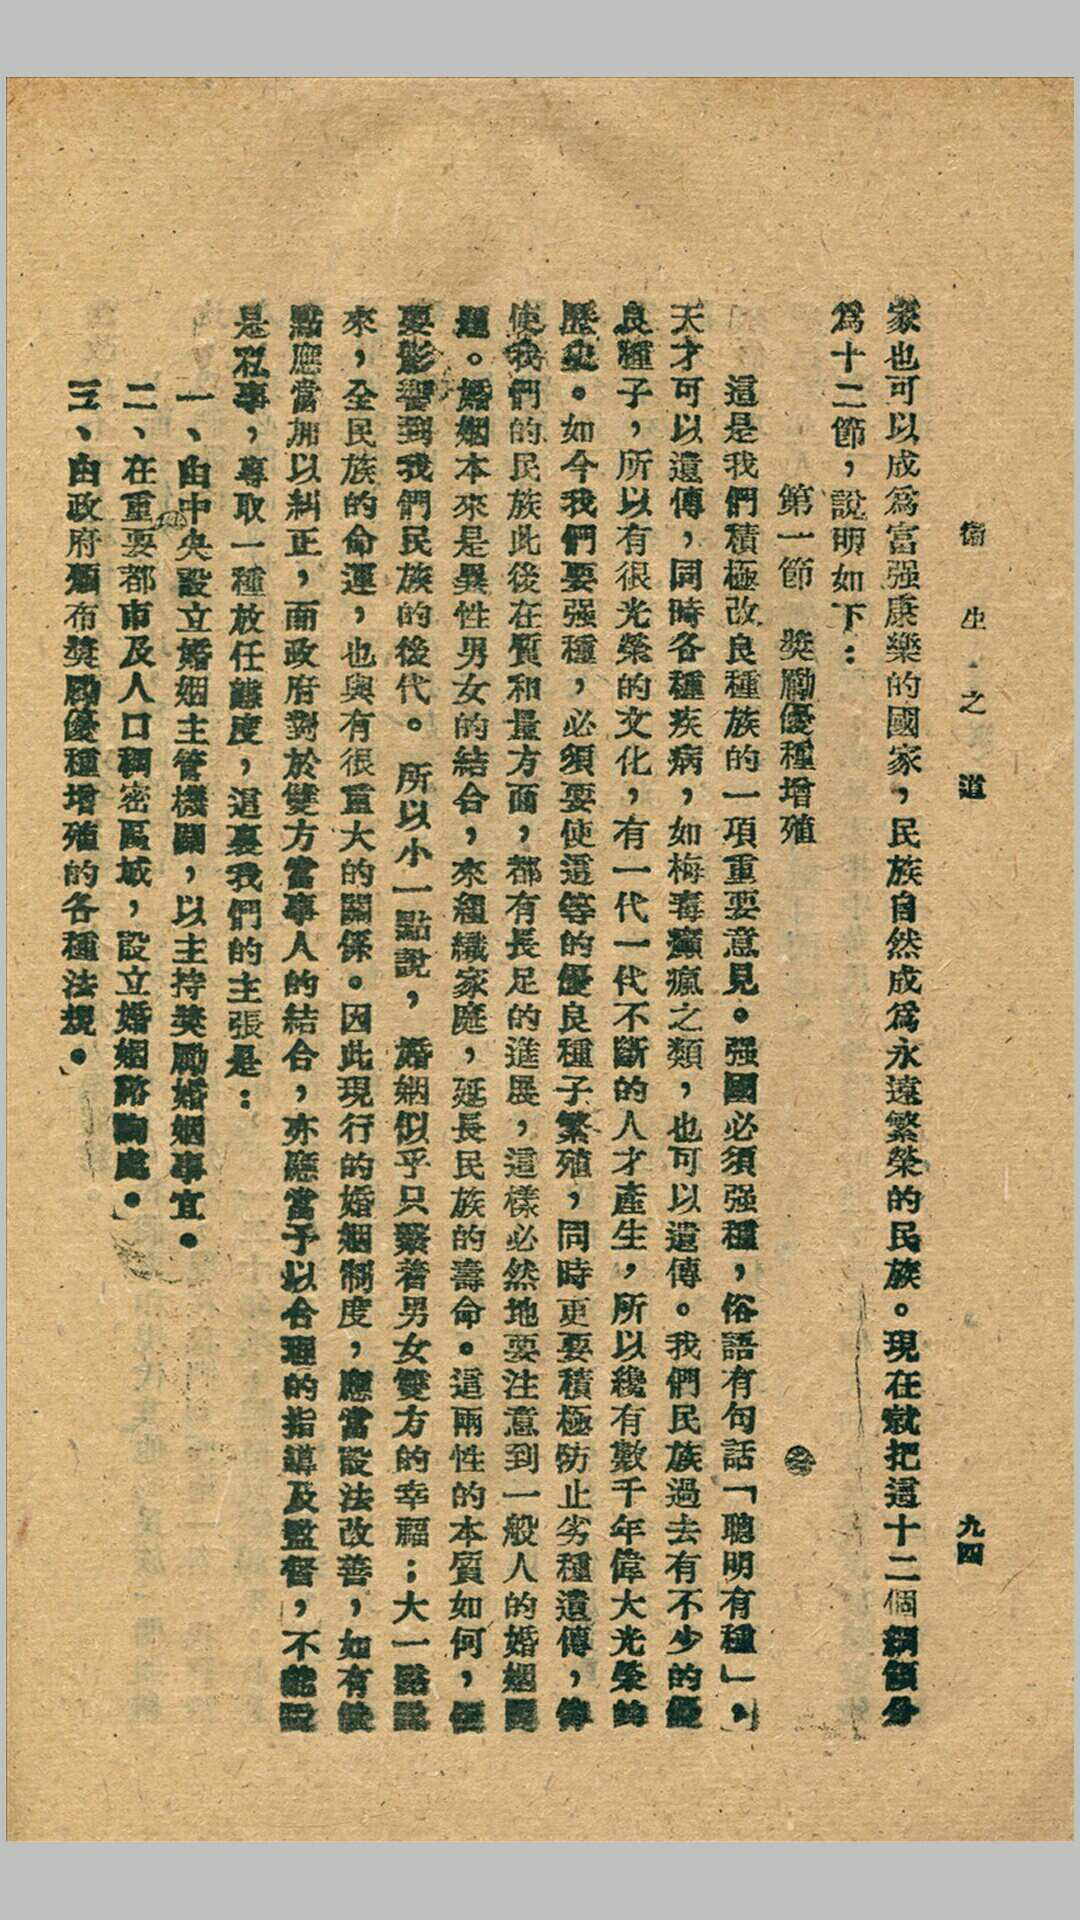 衞生之道
九四
家也可以成爲富强康樂的國家，民族自然成爲永遠繁榮的民族。現在就把這十二個綱領分
爲十二節，說明如下：
第一節 獎勵優種增殖
這是我們積極改良種族的一項重要意見。强國必須强種，俗語有句話「聰明有種」，
天才可以遺傳，同時各種疾病，如梅毒癲瘋之類，也可以遺傳。我們民族過去有不少的優
良種子，所以有很光榮的文化，有一代一代不斷的人才產生，所以纔有數千年偉大光榮的
歷史。如今我們要强種，必須要使這等的優良種子繁殖，同時更要積極防止劣種遺傳，俾
使我們的民族此後在質和量方面，都有長足的進展，這樣必然地要注意到一般人的婚姻問
題。婚姻本來是異性男女的結合，來組織家庭，延長民族的壽命。這兩性的本質如何，便
要影響到我們民族的後代。所以小一點說，婚姻似乎只繫着男女雙方的幸福；大一點說
來，全民族的命運，也與有很重大的關係。因此現行的婚姻制度，應當設法改善，如有缺
點應當加以糾正，而政府對於雙方當事人的結合，亦應當予以合理的指導及監督，不能說
是私事，專取一種放任態度，這裏我們的主張是：
一、由中央設立婚姻主管機關，以主持獎勵婚姻事宜。
二、在重要都市及人口稠密區域，設立婚姻諮詢處。
三、由政府頒布獎勵優種增殖的各種法規。